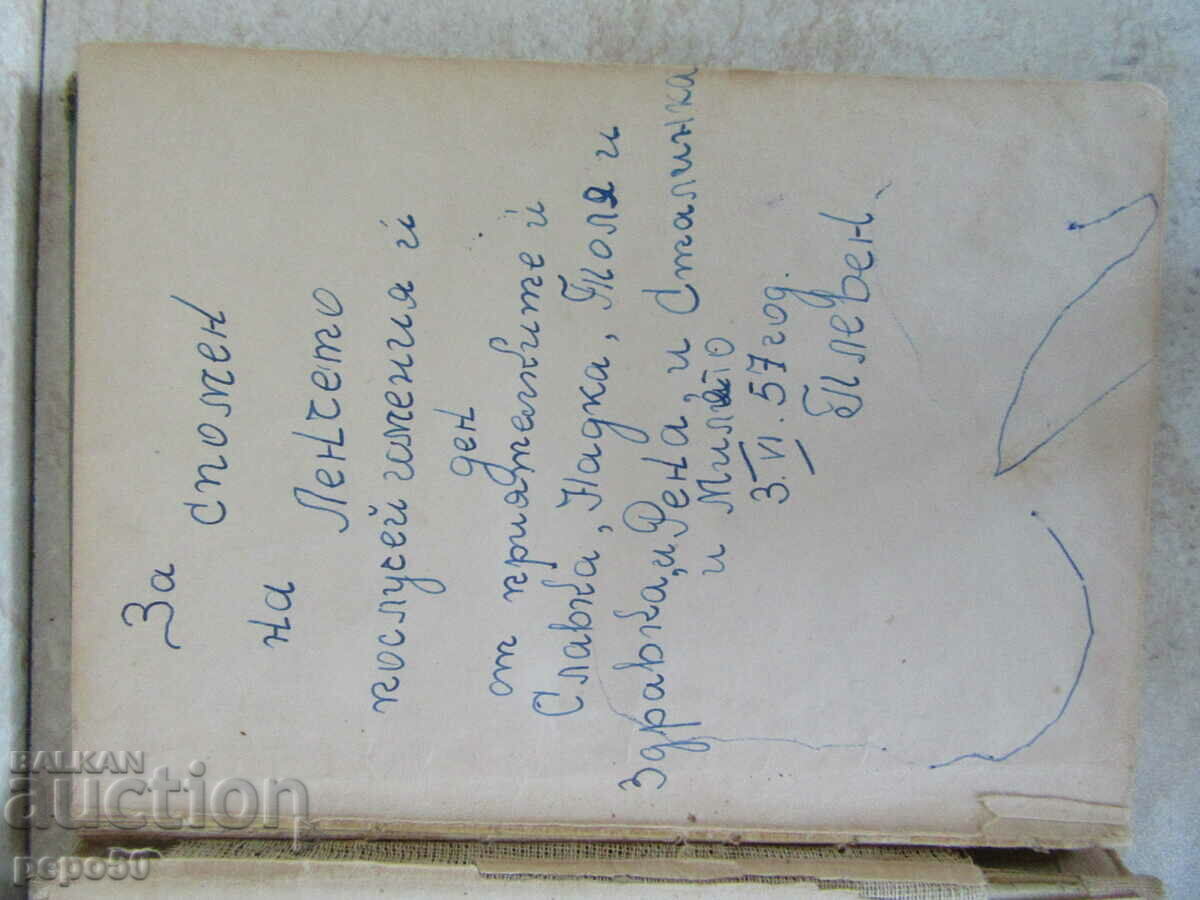 За
спомен
на
Ленчето
послусей именния ѝ
ден
от приятелките ѝ
Славка, Надка, Толя и
Здравка, и Рена, и Сталинка
и Милято
3.VI.57 год.
Плевен.
BALKAN
auction
pepo50